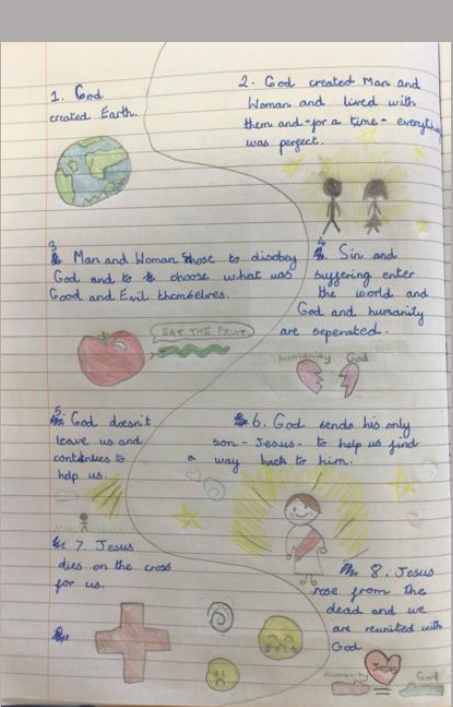 1. God
created Earth.
2. God created Man and
Woman and lived with
them and - for a time - everything
was perfect.
3
Man and Woman chose to disobey
God and to choose what was
Good and Evil themselves.
EAT THE FRUIT
4
Sin and
suffering enter
the world and
God and humanity
are seperated.
Humanity God
5.
God doesn't
leave us and
continues to
help us.
6. God sends his only
son - Jesus - to help us find
a way back to him.
7. Jesus
dies on the cross
for us.
8. Jesus
rose from the
dead and we
are reunited with
God
Humanity Jesus God